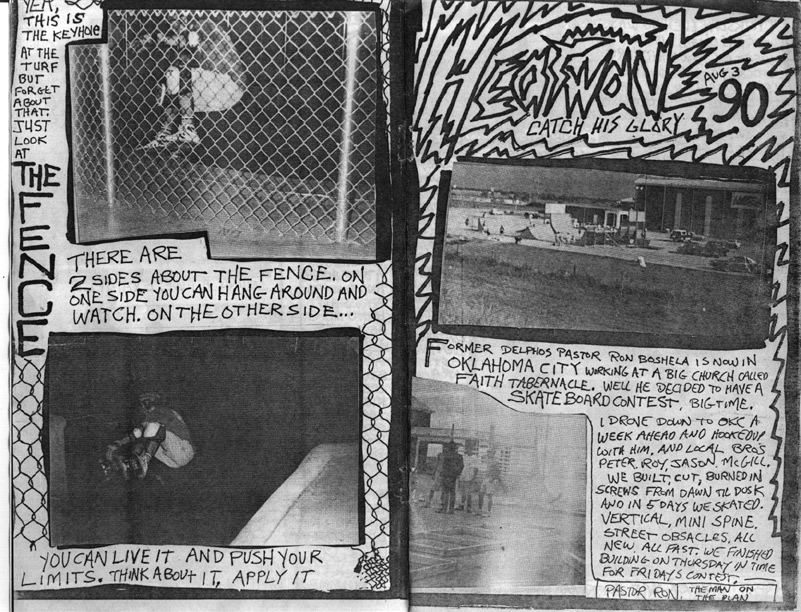 YER,
THIS IS
THE KEYHOLE
AT THE
TURF
BUT
FORGET
ABOUT
THAT.
JUST
LOOK
AT
THE
FENCE
THERE ARE
2 SIDES ABOUT THE FENCE. ON
ONE SIDE YOU CAN HANG AROUND AND
WATCH. ON THE OTHER SIDE...
YOU CAN LIVE IT AND PUSH YOUR
LIMITS. THINK ABOUT IT, APPLY IT
AUG 3
90
CATCH HIS GLORY
FORMER DELPHOS PASTOR RON BOSHELA IS NOW IN
OKLAHOMA CITY WORKING AT A BIG CHURCH CALLED
FAITH TABERNACLE. WELL HE DECIDED TO HAVE A
SKATEBOARD CONTEST, BIG TIME.
I DROVE DOWN TO OKC A
WEEK AHEAD AND HOOKED UP
WITH HIM, AND LOCAL BRO'S
PETER, ROY, JASON, MCGILL.
WE BUILT, CUT, BURNED IN
SCREWS FROM DAWN TIL DUSK
AND IN 5 DAYS WE SKATED.
VERTICAL, MINI SPINE.
STREET OBSTACLES, ALL
NEW. ALL FAST. WE FINISHED
BUILDING ON THURSDAY IN TIME
FOR FRIDAYS CONTEST.
PASTOR RON, THE MAN ON
THE PLAN